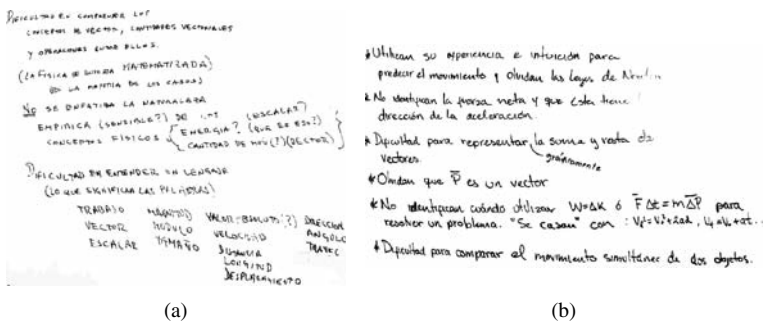 DIFICULTAD EN COMPRENDER LOS
CONCEPTOS DE VECTOR, CANTIDADES VECTORIALES
Y OPERACIONES ENTRE ELLOS.
(LA FÍSICA SE ENSEÑA MATEMATIZADA)
EN LA MAYORÍA DE LOS CASOS)
NO SE ENFATIZA LA NATURALEZA
EMPIRICA (SENSIBLE?) DE LOS
CONCEPTOS FÍSICOS { ENERGIA? (ESCALAR?)
(QUE ES ESO?)
CANTIDAD DE MOV(?) (VECTOR) }
DIFICULTAD EN ENTENDER UN LENGAJE
(LO QUE SIGNIFICAN LAS PALABRAS)
TRABAJO MAGNITUD VALOR ABSOLUTO(?) DIRECCION
VECTOR MODULO VELOCIDAD ANGULO
ESCALAR TAMAÑO DISTANCIA
LONGITUD
DESPLAZAMIENTO
(a)
* Utilizan su experiencia e intuición para
predecir el movimiento y Olvidan las Leyes de Newton
* No identifican la fuerza neta y que ésta tiene
dirección de la aceleración.
* Dificultad para representar, la suma y resta de
vectores. gráficamente
* Olvidan que P̄ es un vector
* No identifican cuándo utilizar W=ΔK ó F̄Δt=mΔP̄ para
resolver un problema. "Se casan" con : Vf²=Vi²+2ad, Vf=Vi+at..
* Dificultad para comparar el movimiento simultáneo de dos objetos.
(b)